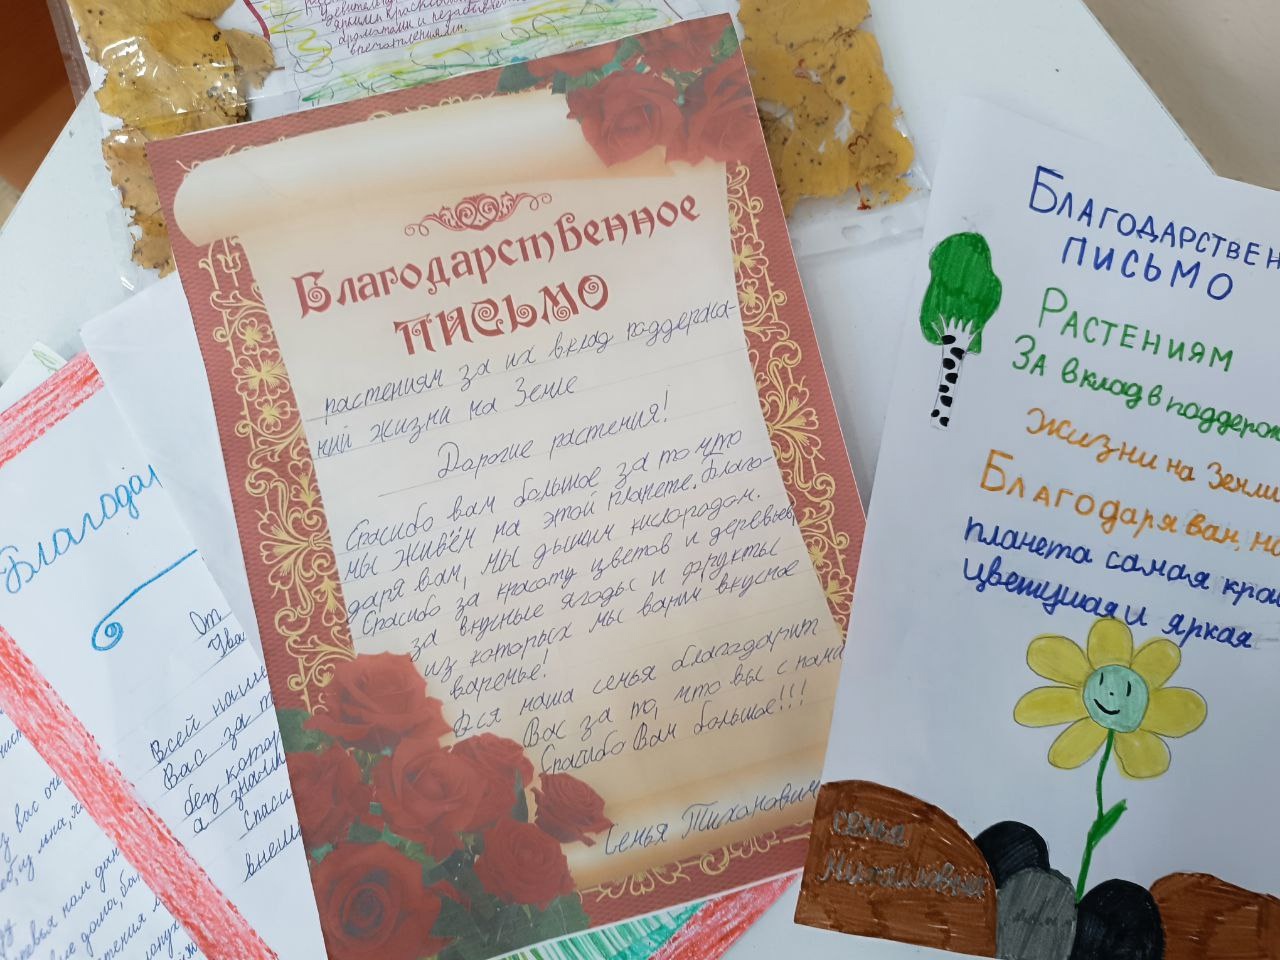 яркими красками,
ароматами и незабываемыми
впечатлениями.
Благодарственное
ПИСЬМО
растениям за их вклад поддержа-
ний жизни на Земле
Дорогие растения!
Спасибо вам большое за то что
мы живём на этой планете. Благо-
даря вам, мы дышим кислородом.
Спасибо за красоту цветов и деревьев,
за вкусные ягоды и фрукты
из которых мы варим вкусное
варенье!
Вся наша семья благодарит
Вас за то, что вы с нами
Спасибо Вам большое!!!
Семья Тиханович
БЛАГОДАРСТВЕН
ПИСЬМО
РАСТЕНИЯМ
ЗА вклад в поддерж
Жизни на Земли
БЛАГОдаря вам, на
планета самая кра
цветущая и яркая
семья
Благодар
От
Ува
Всей наше
Вас за т
без котор
а значи
Спаси
внеш